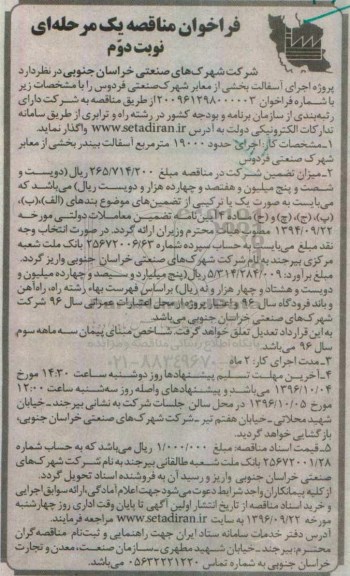 فراخوان مناقصه یک مرحله‌ای
نوبت دوّم
شرکت شهرک‌های صنعتی خراسان جنوبی در نظر دارد
پروژه اجرای آسفالت بخشی از معابر شهرک صنعتی فردوس را با مشخصات زیر
با شماره فراخوان ۲۰۰۹۶۱۲۹۸۰۰۰۰۰۳ از طریق مناقصه به شرکت دارای
رتبه‌بندی از سازمان برنامه و بودجه کشور در رشته راه و ترابری از طریق سامانه
تدارکات الکترونیکی دولت به آدرس www.setadiran.ir واگذار نماید.
۱-مشخصات کار: اجرای حدود ۱۹۰۰۰ مترمربع آسفالت بیندر بخشی از معابر
شهرک صنعتی فردوس
۲-میزان تضمین شرکت در مناقصه مبلغ ۲۶۵/۷۱۴/۲۰۰ ریال (دویست و
شصت و پنج میلیون و هفتصد و چهارده هزار و دویست ریال) می‌باشد که
می‌بایست به صورت یک یا ترکیبی از تضمین‌های موضوع بندهای (الف)، (ب)،
(پ)، (ج)، (چ) و (ح) ماده ۴ آیین‌نامه تضمین معاملات دولتی مورخه
۱۳۹۴/۰۹/۲۲ مصوب هیأت محترم وزیران ارائه گردد. در صورت انتخاب وجه
نقد مبلغ می‌بایست به حساب سپرده شماره ۲۵۶۷۲۰۰۶/۶۳ بانک ملت شعبه
مرکزی بیرجند به نام شرکت شهرک‌های صنعتی خراسان جنوبی واریز گردد.
مبلغ برآورد: ۵/۳۱۴/۲۸۴/۰۰۹ ریال (پنج میلیارد و سیصد و چهارده میلیون و
دویست و هشتاد و چهار هزار و نه ریال) براساس فهرست بهاء رشته راه، راه‌آهن
و باند فرودگاه سال ۹۶ و اعتبار پروژه از محل اعتبارات عمرانی سال ۹۶ شرکت
شهرک‌های صنعتی خراسان جنوبی می‌باشد.
به این قرارداد تعدیل تعلق خواهد گرفت. شاخص مبنای پیمان سه ماهه سوم
سال ۹۶ می‌باشد.
۳-مدت اجرای کار: ۲ ماه
۴-آخرین مهلت تسلیم پیشنهادها روز دوشنبه ساعت ۱۴:۳۰ مورخ
۱۳۹۶/۱۰/۰۴ می‌باشد و پیشنهادهای واصله روز سه‌شنبه ساعت ۱۲:۰۰
مورخ ۱۳۹۶/۱۰/۰۵ در محل سالن جلسات شرکت به نشانی بیرجند-خیابان
شهید محلاتی-خیابان هفتم تیر-شرکت شهرک‌های صنعتی خراسان جنوبی،
بازگشایی خواهد گردید.
۵-قیمت اسناد مناقصه: مبلغ ۱/۰۰۰/۰۰۰ ریال می‌باشد که به حساب شماره
۲۵۶۷۲۰۰۱/۲۸ بانک ملت شعبه طالقانی بیرجند به نام شرکت شهرک‌های
صنعتی خراسان جنوبی واریز و رسید آن به فروشنده اسناد تحویل گردد.
از کلیه پیمانکاران واجد شرایط دعوت می‌شود جهت اعلام آمادگی، ارائه سوابق اجرایی
و خرید اسناد مناقصه از تاریخ انتشار اولین آگهی تا پایان وقت اداری روز چهارشنبه
مورخه ۱۳۹۶/۰۹/۲۲ به سایت www.setadiran.ir مراجعه فرمایند.
آدرس دفتر خدمات سامانه ستاد ایران جهت راهنمایی و ثبت‌نام مناقصه‌گران
محترم: بیرجند-خیابان شهید مطهری-سازمان صنعت، معدن و تجارت
خراسان جنوبی به شماره تماس ۰۵۶۳۲۲۲۱۲۲۰ می‌باشد.